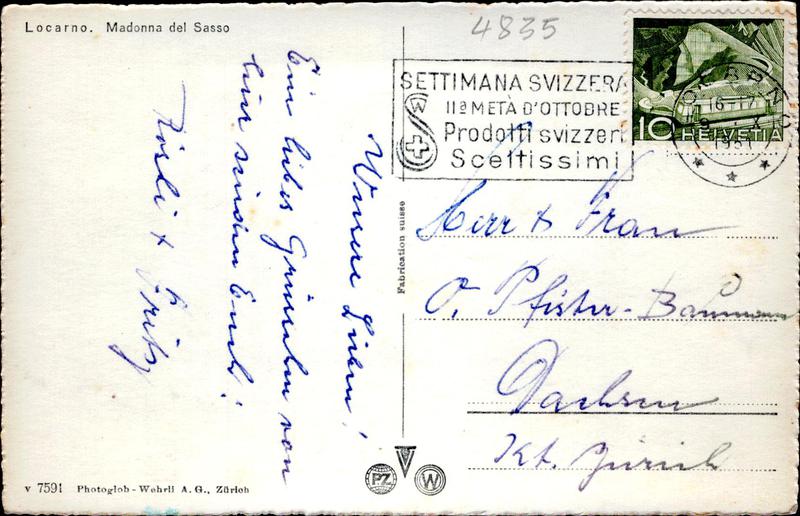 Locarno. Madonna del Sasso
4835
SETTIMANA SVIZZERA
IIª METÀ D'OTTOBRE
Prodotti svizzeri
Sceltissimi
W
16-17
X
1951
10 HELVETIA
Unsere Lieben!
Ein liebes Grüsschen von
hier senden Euch!
Rösli & Fritz
Fabrication suisse
Herr & Frau
O. Pfister-Baumann
Dachsen
Kt. Zürich
v 7591 Photoglob-Wehrli A. G., Zürich
PZ
W